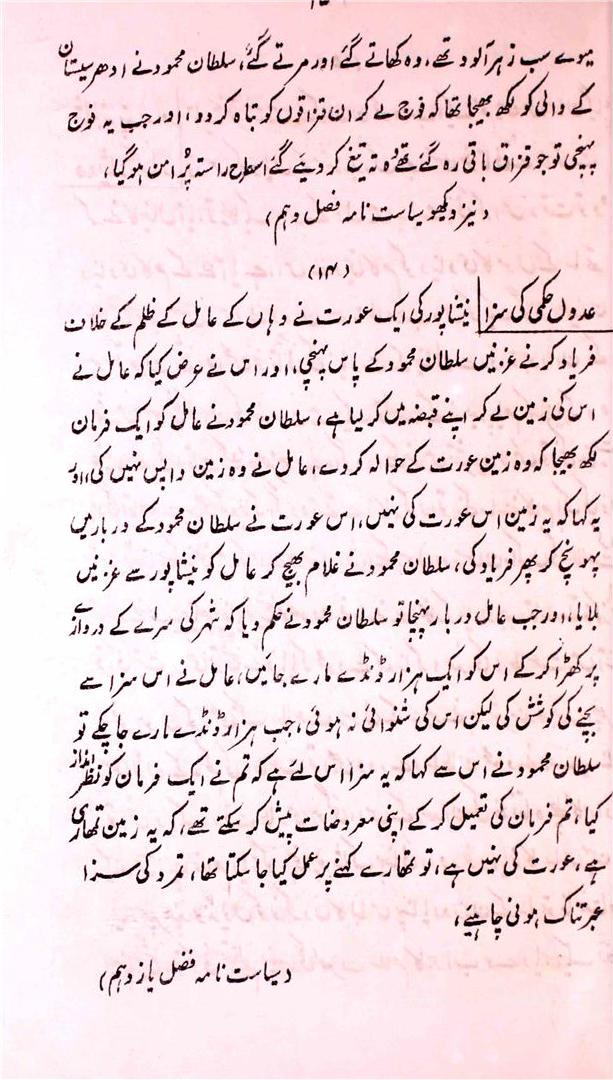 میوے سب زہر آلود تھے، وہ کھاتے گئے اور مرتے گئے، سلطان محمود نے ادھر سیستان
کے والی کو لکھ بھیجا تھا کہ فوج لے کر ان قزاقوں کو تباہ کر دو، اور جب یہ فوج
پہنچی تو جو قزاق باقی رہ گئے تھے وہ تہ تیغ کر دیئے گئے اسطرح راستہ پُر امن ہو گیا،
(نیز دیکھو سیاست نامہ فصل دہم)
(۱۴)
عدول حکمی کی سزا نیشاپور کی ایک عورت نے وہاں کے عامل کے ظلم کے خلاف
فریاد کرنے غزنیں سلطان محمود کے پاس پہنچی، اور اس نے عرض کیا کہ عامل نے
اس کی زمین لے کر اپنے قبضہ میں کر لیا ہے، سلطان محمود نے عامل کو ایک فرمان
لکھ بھیجا کہ وہ زمین عورت کے حوالہ کر دے، عامل نے وہ زمین واپس نہیں کی، اور
یہ کہا کہ یہ زمین اس عورت کی نہیں، اس عورت نے سلطان محمود کے دربار میں
پہونچ کر پھر فریاد کی، سلطان محمود نے غلام بھیج کر عامل کو نیشاپور سے غزنیں
بلایا، اور جب عامل دربار پہنچا تو سلطان محمود نے حکم دیا کہ شہر کی سرائے کے دروازے
پر کھڑا کر کے اس کو ایک ہزار ڈنڈے مارے جائیں، عامل نے اس سزا سے
بچنے کی کوشش کی لیکن اس کی شنوائی نہ ہوئی، جب ہزار ڈنڈے مارے جا چکے تو
سلطان محمود نے اس سے کہا کہ یہ سزا اس لئے ہے کہ تم نے ایک فرمان کو نظر انداز
کیا، تم فرمان کی تعمیل کر کے اپنی معروضات پیش کر سکتے تھے، کہ یہ زمین تمھاری
ہے، عورت کی نہیں ہے، تو تمھارے کہنے پر عمل کیا جا سکتا تھا، تمرد کی سزا
عبرتناک ہونی چاہیئے،
(سیاست نامہ فصل یازدہم)